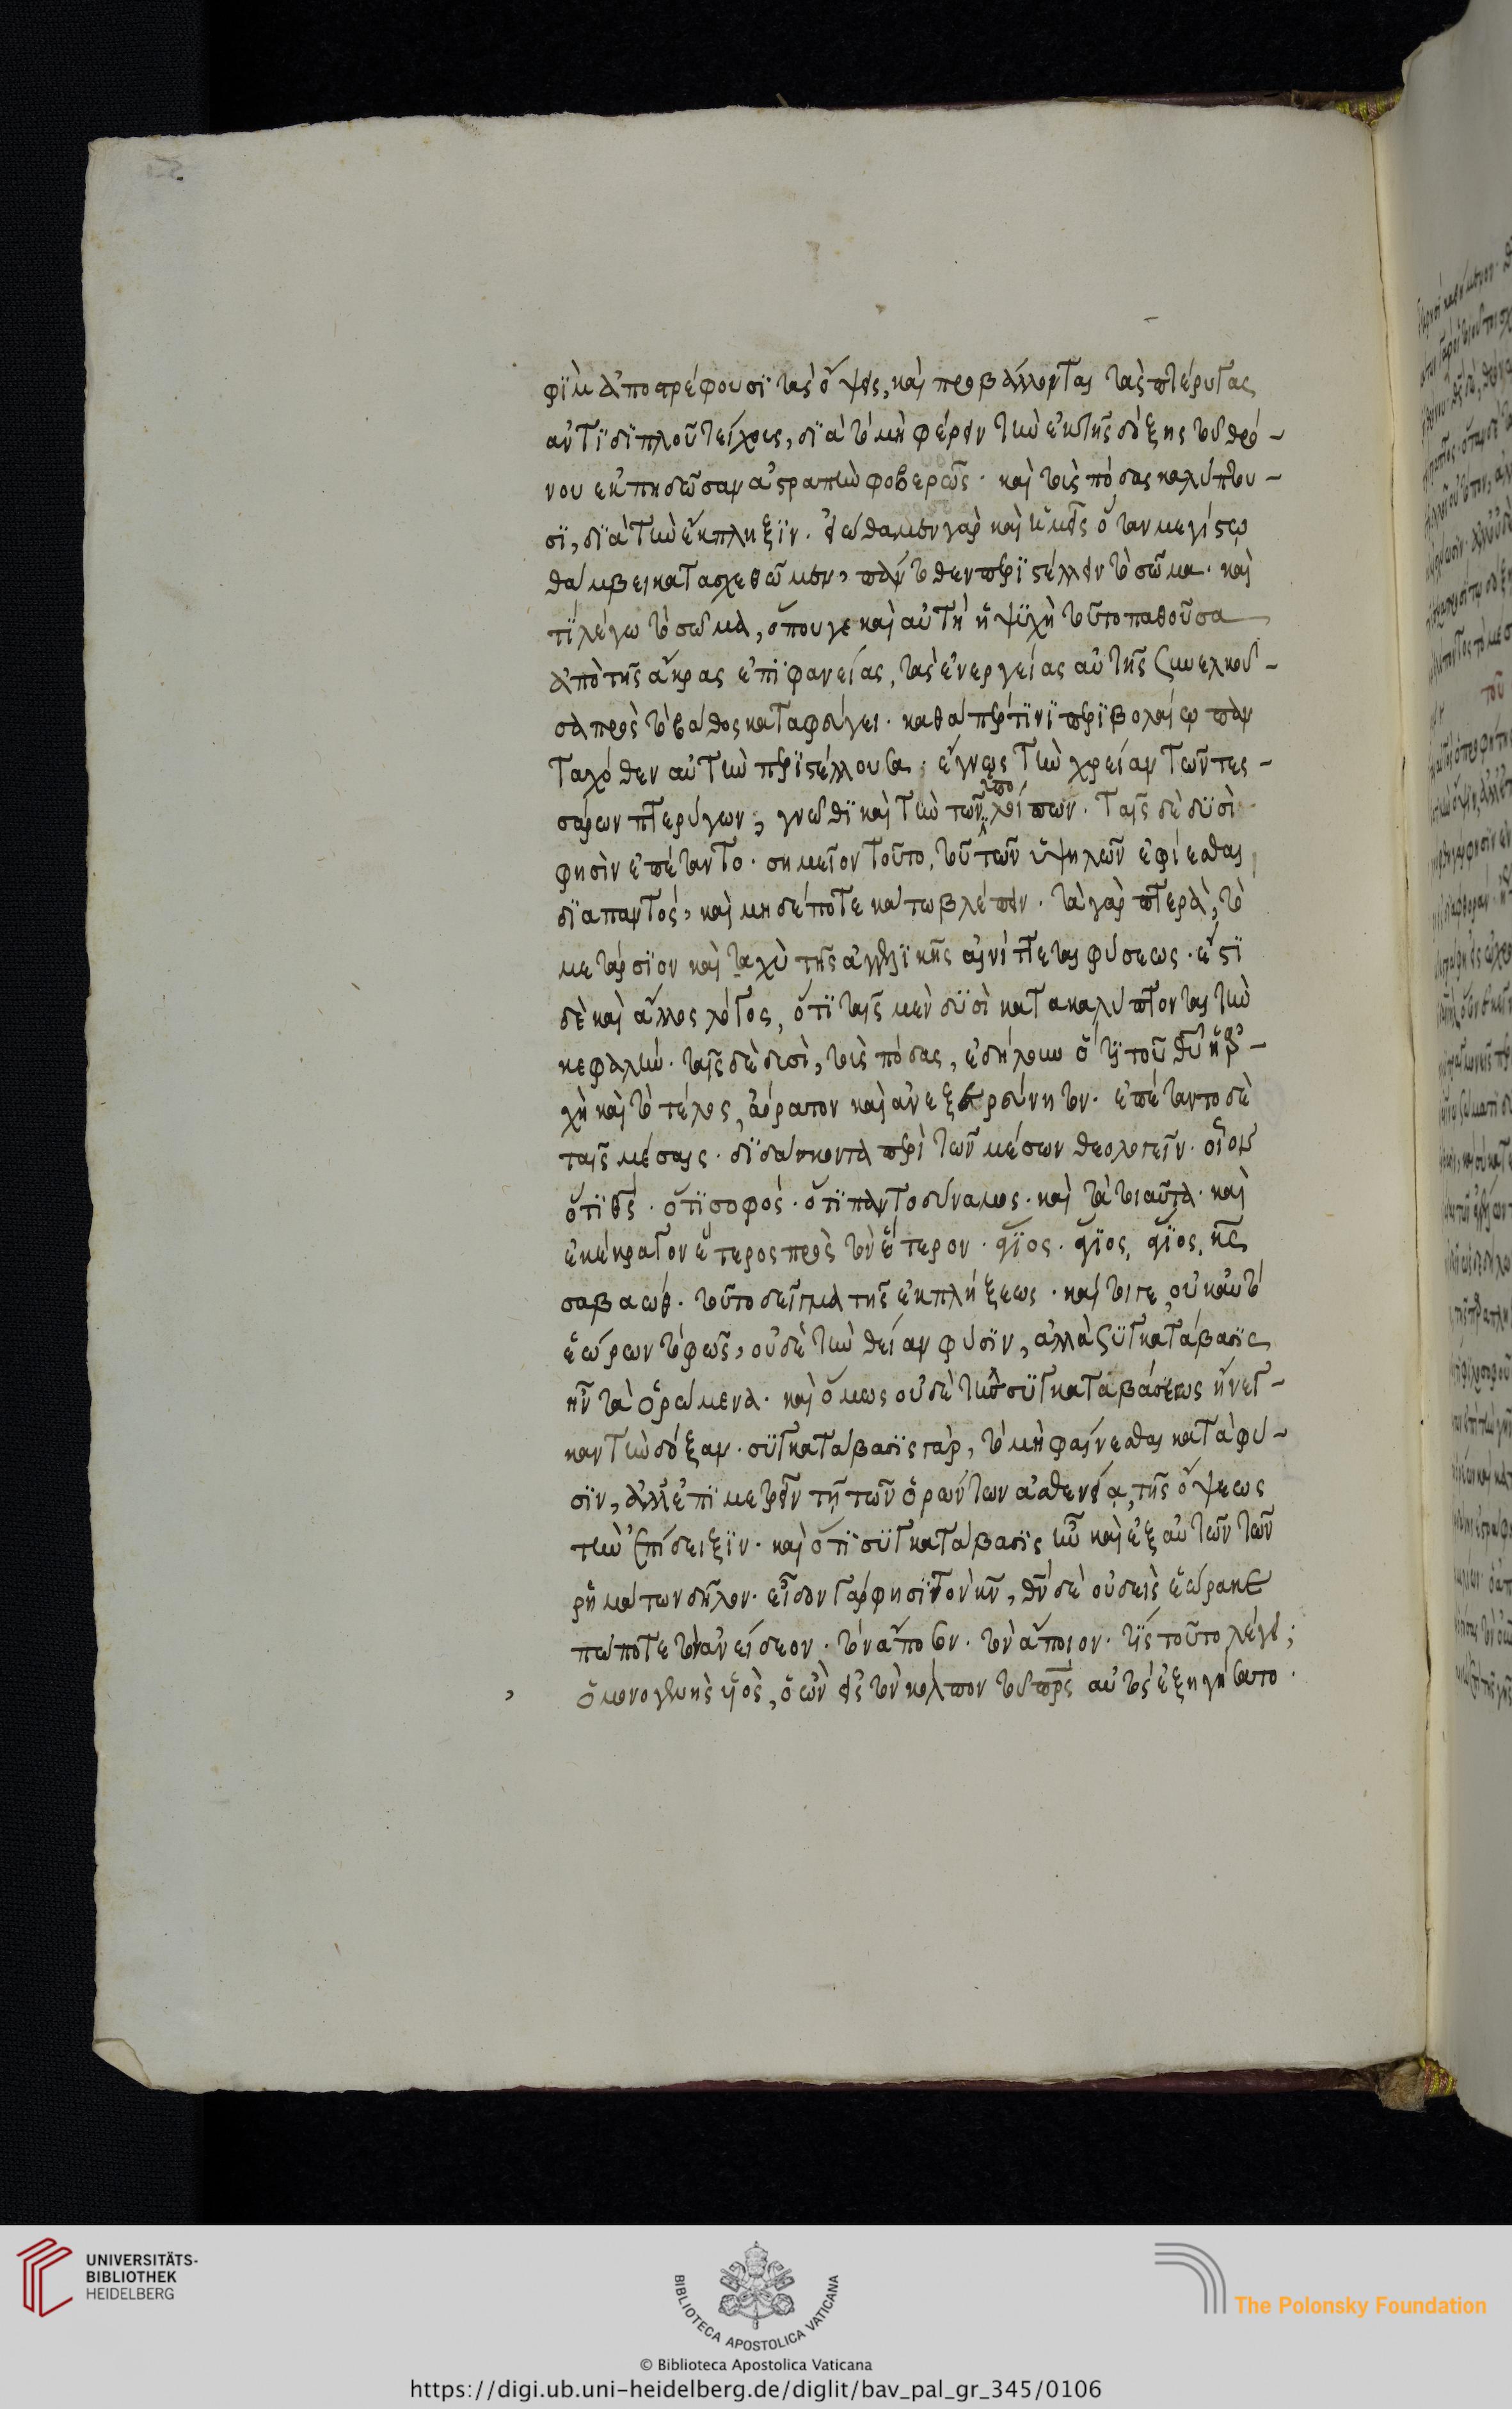 φὶμ ἀποστρέφουσι τὰς ὄψεις, καὶ προβάλλονται τὰς πτέρυγας
ἀντὶ διπλοῦ τείχους, διὰ τὸ μὴ φέρειν τὴν ἐκ τῆς δόξης τοῦ θρό-
νου ἐκπηδῶσαν ἀστραπὴν φοβερῶς · καὶ τοὺς πόδας καλύπτου-
σι, διὰ τὴν ἔκπληξιν · εἰώθαμεν γὰρ καὶ ἡμεῖς ὅταν μεγίστῳ
θάμβει κατασχεθῶμεν, πάντοθεν περιστέλλειν τὸ σῶμα · καὶ
τί λέγω τὸ σῶμα, ὅπου γε καὶ αὐτὴ ἡ ψυχὴ τοῦτο παθοῦσα
ἀπὸ τῆς ἄκρας ἐπιφανείας, τὰς ἐνεργείας αὐτῆς συνελκοῦ-
σα πρὸς τὸ βάθος καταφεύγει · καθάπερ τινὶ περιβολαίῳ παν
ταχόθεν αὐτὴν περιστέλλουσα · ἔγνως τὴν χρείαν τῶν τες-
σάρων πτερύγων, γνῶθι καὶ τὴν τῶν ὑπολοίπων · ταῖς δὲ δυσὶ
φησὶν ἐπέταντο · σημεῖον τοῦτο, τοῦ τῶν ὑψηλῶν ἐφίεσθαι
διαπαντός, καὶ μηδέποτε κάτω βλέπειν · τὰ γὰρ πτερὰ, τὸ
μετάρσιον καὶ ταχὺ τῆς ἀγγελικῆς αἰνίττεται φύσεως · ἔστι
δὲ καὶ ἄλλος λόγος, ὅτι ταῖς μὲν δυσὶ κατακαλύπτονται τὴν
κεφαλήν · ταῖς δὲ δυσὶ, τοὺς πόδας, ἐδήλουν ὅτι τοῦ θυ ἡ ἀρ-
χὴ καὶ τὸ τέλος, ἀόρατον καὶ ἀνεξερεύνητον · ἐπέταντο δὲ
ταῖς μέσαις · διδάσκοντα περὶ τῶν μέσων θεολογεῖν · οἷον
ὅτι θς · ὅτι σοφός · ὅτι παντοδύναμος · καὶ τὰ τοιαῦτα · καὶ
ἐκέκραγον ἕτερος πρὸς τὸν ἕτερον · ἅγιος · ἅγιος, ἅγιος, κς
σαβαώθ · τοῦτο δεῖγμα τῆς ἐκπλήξεως · καίτοιγε, οὐκ αὐτὸ
ἑώρων τὸ φῶς, οὐδὲ τὴν θείαν φύσιν, ἀλλὰ συγκατάβασις
ἦν τὰ ὁρώμενα · καὶ ὅμως οὐδὲ τῆς συγκαταβάσεως ἤνεγ-
καν τὴν δόξαν · συγκατάβασις γὰρ, τὸ μὴ φαίνεσθαι κατὰ φύ-
σιν, ἀλλ' ἐπιμετρεῖν τῇ τῶν ὁρώντων ἀσθενείᾳ, τῆς ὄψεως
τὴν ἐπίδειξιν · καὶ ὅτι συγκατάβασις ἦν καὶ ἐξ αὐτῶν τῶν
ῥημάτων δῆλον · εἶδον γάρ φησὶ τὸν κν, θν δὲ οὐδεὶς ἑώρακε
πώποτε τὸν ἀνείδεον · τὸν ἄποσον · τὸν ἄποιον · τίς τοῦτο λέγει ;
ὁ μονογενὴς υἱὸς, ὁ ὢν εἰς τὸν κόλπον τοῦ πρς αὐτὸς ἐξηγήσατο ·
UNIVERSITÄTS-
BIBLIOTHEK
HEIDELBERG
BIBLIOTECA APOSTOLICA VATICANA
The Polonsky Foundation
© Biblioteca Apostolica Vaticana
https://digi.ub.uni-heidelberg.de/diglit/bav_pal_gr_345/0106